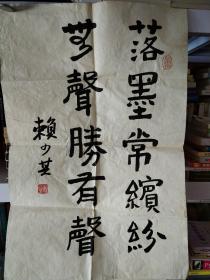 落墨常繽紛
無聲勝有聲
賴少其